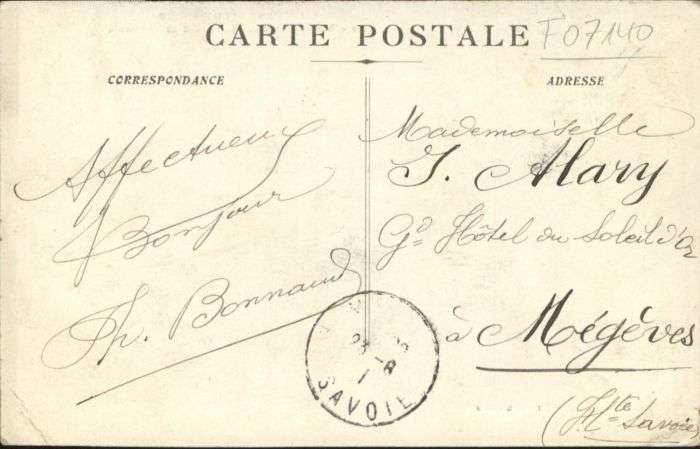 CARTE POSTALE
F07140
CORRESPONDANCE
ADRESSE
Affectueux
Bonjour
Ph. Bonnaud
Mademoiselle
J. Alary
Gd Hôtel du Soleil d'Or
à Mégèves
(Hte Savoie)
SAVOIE